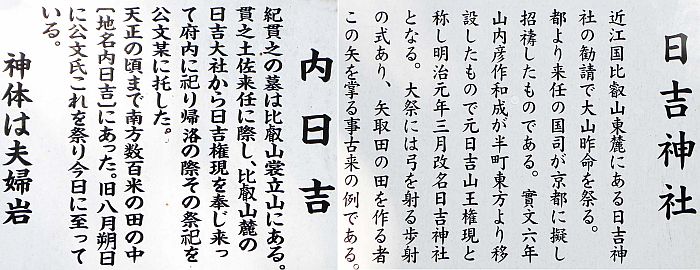 日吉神社
近江国比叡山東麓にある日吉神
社の勧請で大山咋命を祭る。
都より来任の国司が京都に擬し
招祷したものである。寛文六年
山内彦作和成が半町東方より移
設したもので元日吉山王権現と
称し明治元年三月改名日吉神社
となる。大祭には弓を射る歩射
の式あり、矢取田の田を作る者
この矢を掌る事古来の例である。
内日吉
紀貫之の墓は比叡山裳立山にある。
貫之土佐来任に際し、比叡山麓の
日吉大社から日吉権現を奉じ来っ
て府内に祀り帰洛の際その祭祀を
公文某に托した。
天正の頃まで南方数百米の田の中
〔地名内日吉〕にあった。旧八月朔日
に公文氏これを祭り今日に至って
いる。
神体は夫婦岩